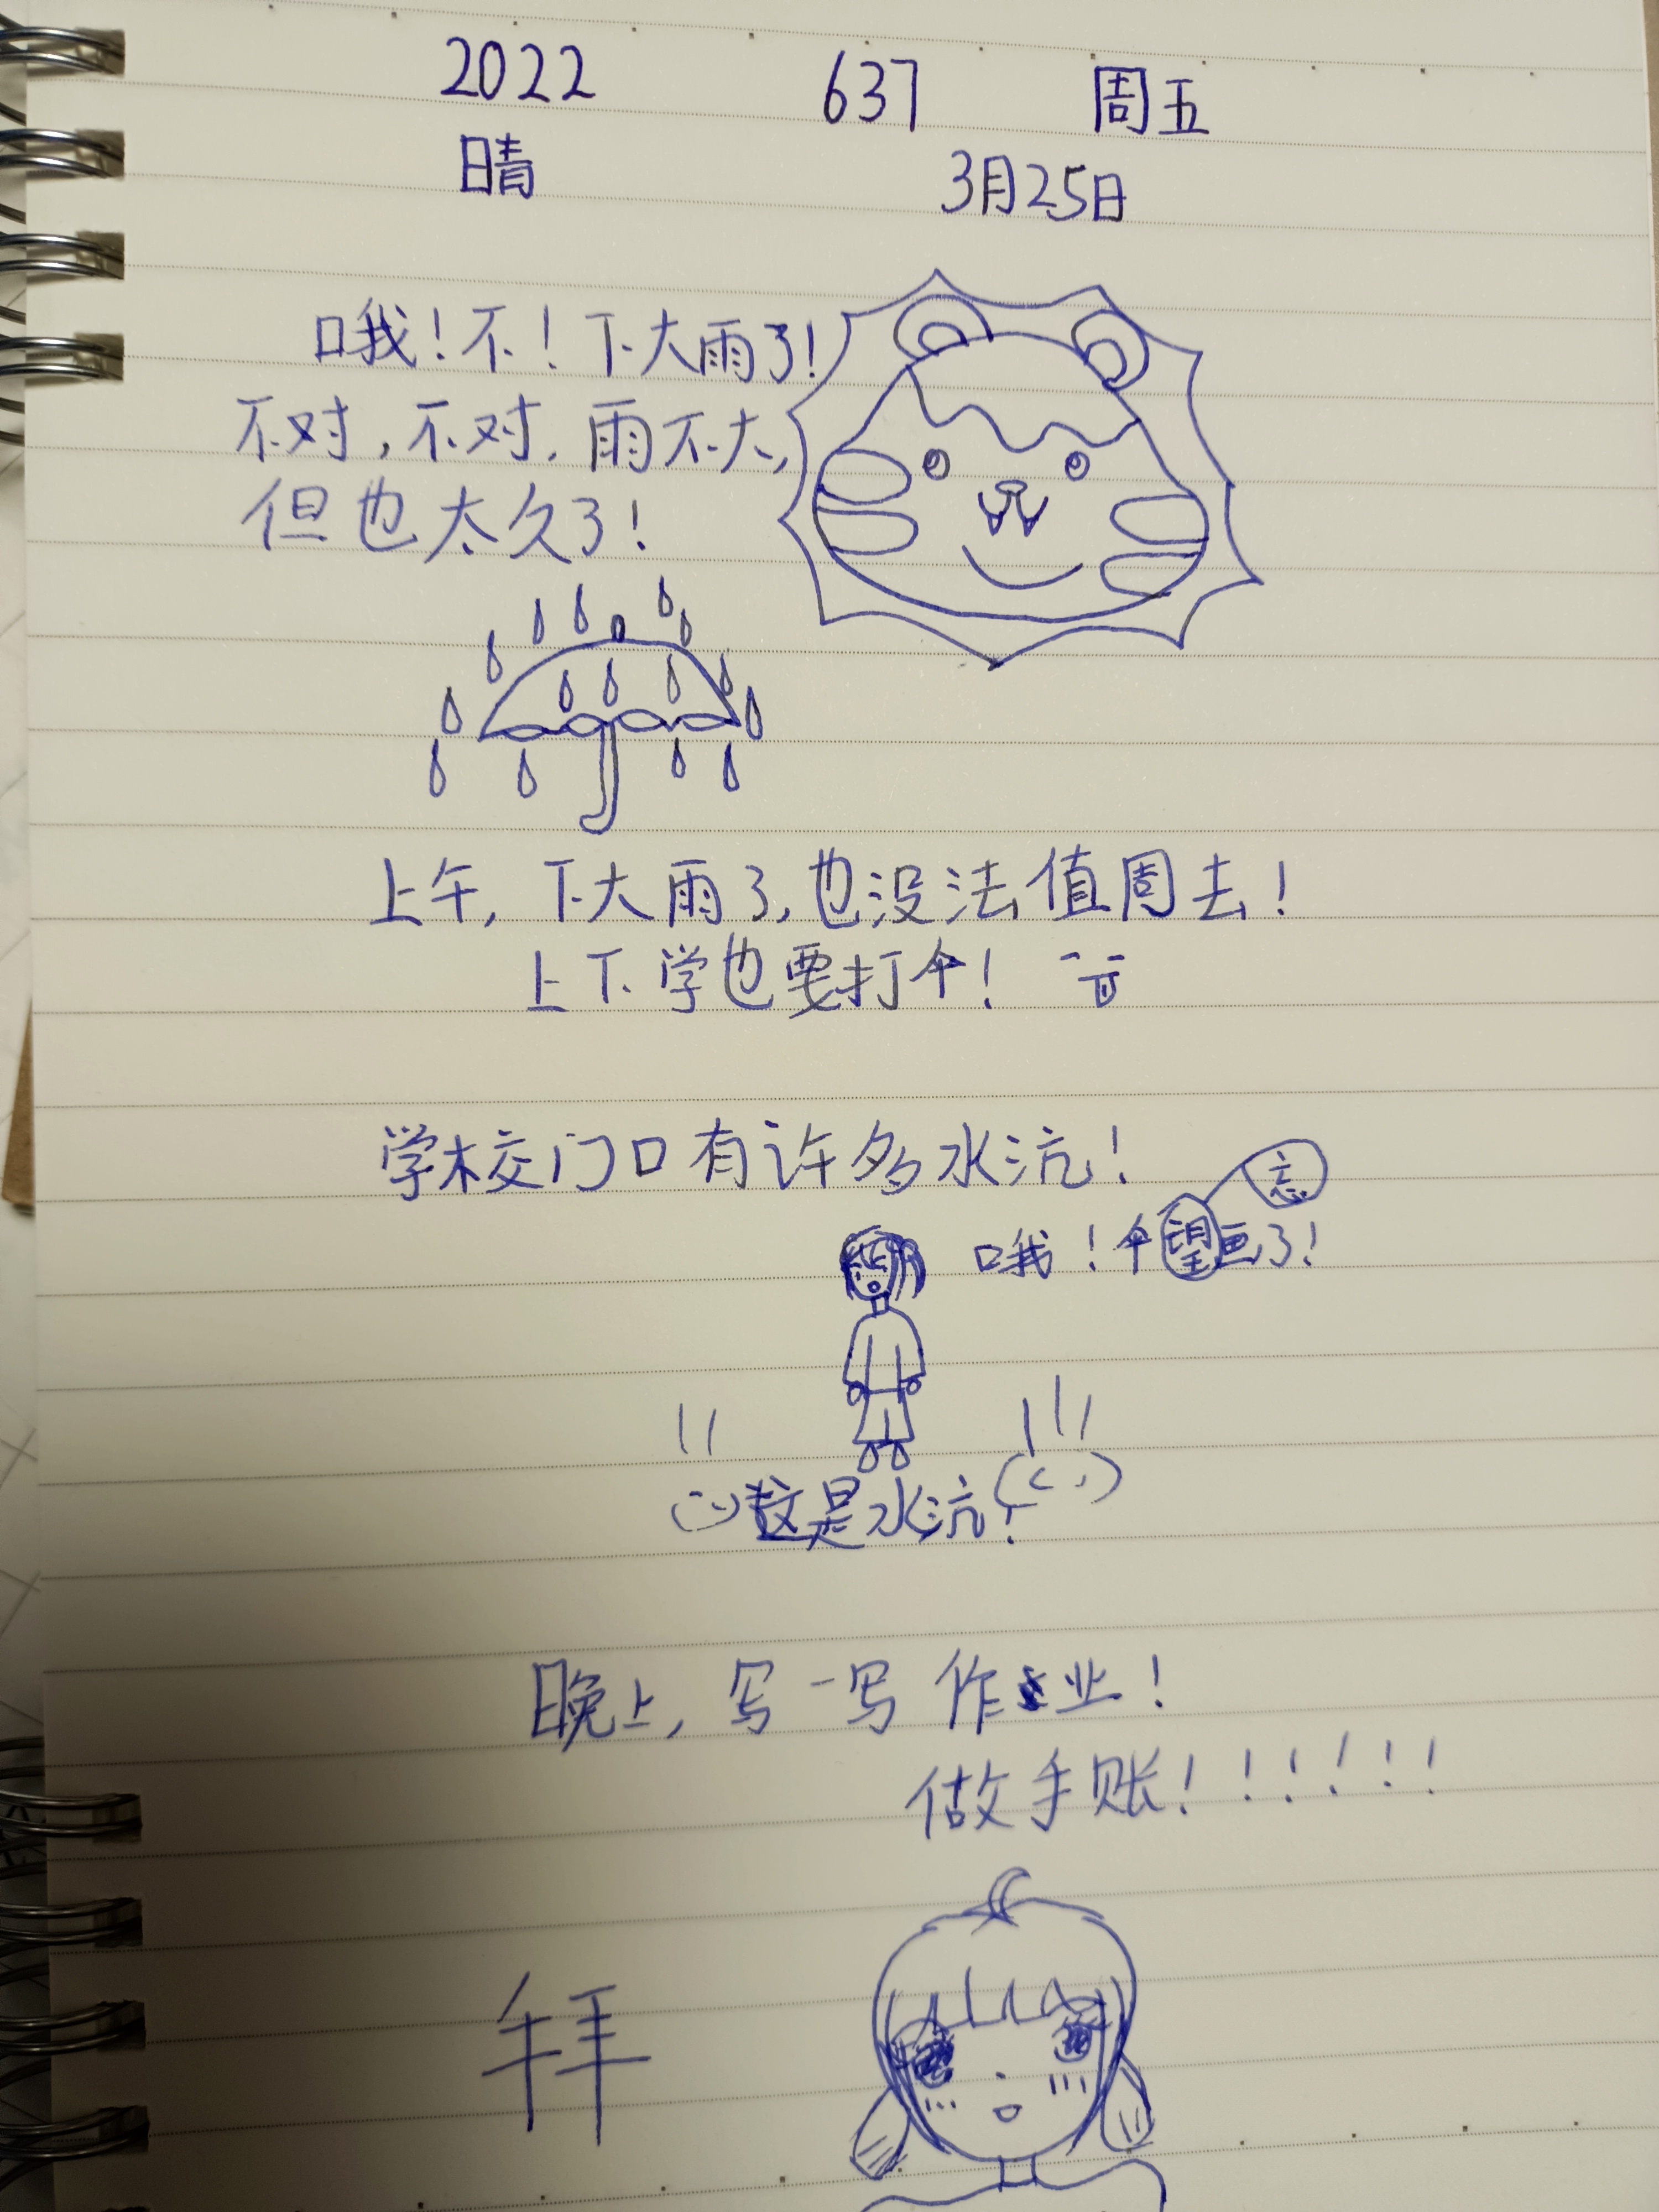 2022 637 周五
晴 3月25日
哦！不！下大雨了！
不对，不对，雨不大，
但也太久了！
上午，下大雨了，也没法值周去！
上下学也要打伞！
学校门口有许多水沆！
忘
哦！伞望画了！
这是水沆！
晚上，写一写作业！
做手账！！！！！！！
拜